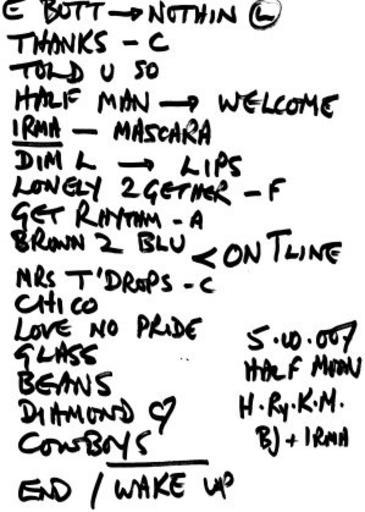 E BUTT → NOTHIN Ⓛ
THANKS - C
TOLD U SO
HALF MAN → WELCOME
IRMA - MASCARA
DIM L → LIPS
LONELY 2GETHER - F
GET RHYTHM - A
BROWN 2 BLU < ON T LINE
MRS T'DROPS - C
CHICO
LOVE NO PRIDE
GLASS
BEANS
DIAMOND ♡
COWBOYS
END / WAKE UP
5.10.007
HALF MOON
H.Ry.K.M.
BJ + IRMA